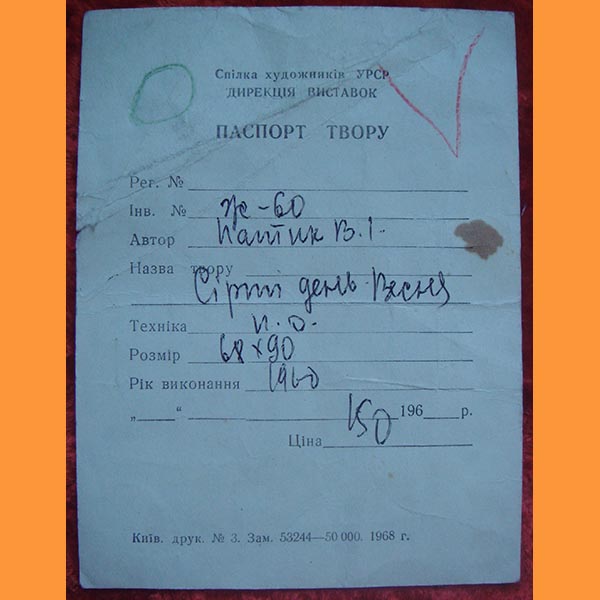 Спілка художників УРСР
ДИРЕКЦІЯ ВИСТАВОК
ПАСПОРТ ТВОРУ
Рег. №
Інв. № Ж-60
Автор Патик В.І.
Назва твору
Сірий день. Весня
Техніка п.о.
Розмір 68х90
Рік виконання 1960
„ “ 196 р.
Ціна 150
Київ. друк. № 3. Зам. 53244—50 000. 1968 г.